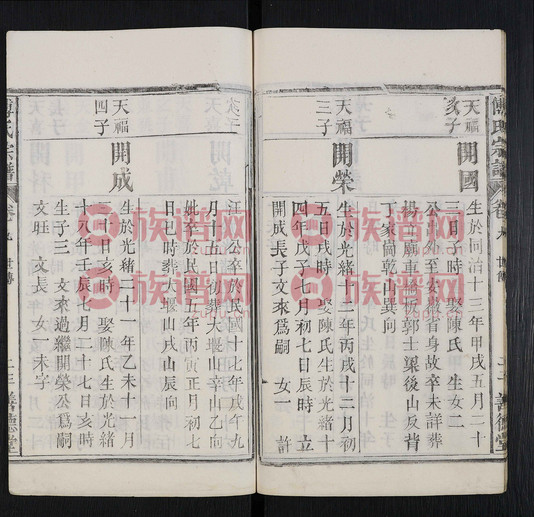 傅氏宗譜
卷九 世傳
二十 善德堂
天福
次子
開國
生於同治十三年甲戌五月二十
三日子時 娶陳氏 生女二
公於外至安徽省身故卒未詳葬
楊古廟車輪板郭士梁後山反背
丁家崗乾山巽向
天福
三子
開榮
生於光緒十二年丙戌十二月初
五日戌時 娶陳氏生於光緒十
四年戊子七月初七日辰時 立
開成長子文來爲嗣 女一 許
汪 公卒於民國十七年戊午九
月十五日初葬大堰山辛山乙向
妣卒於民國五年丙寅正月初七
日巳時葬 堰山戌山辰向
天福
四子
開成
生於光緒二十一年乙未十一月
二十日亥時 娶陳氏生於光緒
十八年壬辰七月二十七日亥時
生子三 文來過繼開榮公爲嗣
文旺 文長 女一未字
傅氏宗譜
卷九 世傳
二十 善德堂
族谱网
族谱网
族谱网
族谱网
族谱网
族谱网